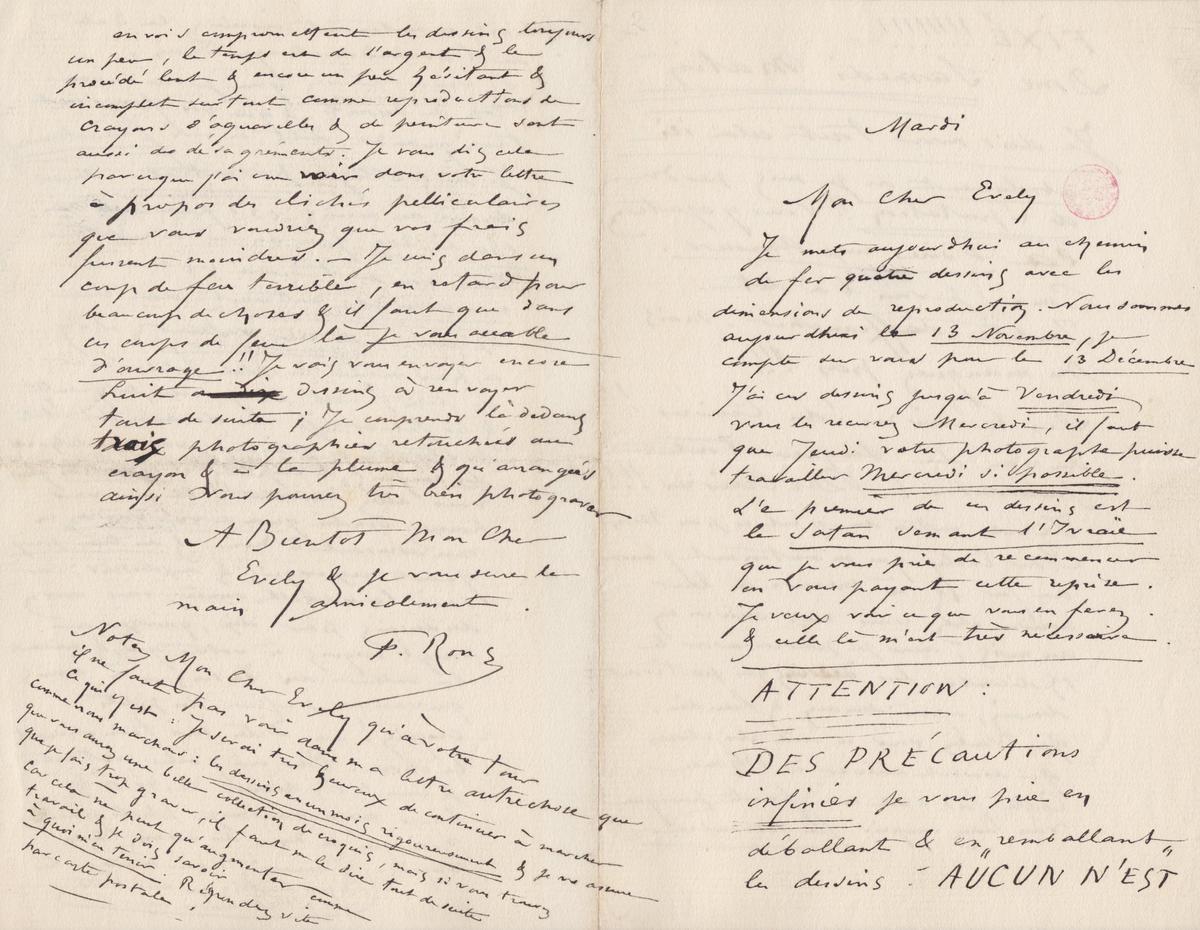 envois compromettent les dessins toujours
un peu, le temps est de l'argent & le
procédé lent & encore un peu hésitant &
incomplet surtout comme reproductions de
crayons d'aquarelles & de peinture sont
aussi des désagréments. Je vous dis cela
parceque j'ai cru voir dans votre lettre
à propos des clichés pelliculaires
que vous voudriez que vos frais
fussent moindres. — Je suis dans un
coup de feu terrible, en retard pour
beaucoup de choses & il faut que dans
ces coups de feu là je vous accable
d'ouvrage !! Je vais vous envoyer encore
huit ou dix dessins à renvoyer
tout de suite ; Je comprends là dedans
trois photographies retouchées au
crayon & à la plume & qu'arrangées
ainsi vous pourrez très bien photograver
A Bientot Mon Cher
Evely & je vous serre la
main amicalement.
F. Rops
Notez Mon Cher Evely qu'à votre tour
il ne faut pas voir dans ma lettre autre chose que
ce qui y est : Je serai très heureux de continuer à marcher
comme nous marchons : les dessins en un mois rigoureusement & je vous assure
que vous aurez une belle collection de croquis, mais si vous trouvez
que je fais trop graver, il faut me le dire tout de suite
car cela ne peut qu'augmenter comme
travail & je dois savoir
à quoi m'en tenir. Répondez vite
par carte postale !
Mardi
Mon Cher Evely
Je mets aujourdhui au chemin
de fer quatre dessins avec les
dimensions de reproduction. Nous sommes
aujourdhui le 13 Novembre, je
compte sur vous pour le 13 Décembre
J'ai ces dessins jusqu'à Vendredi
vous les recevrez Mercredi, il faut
que Jeudi votre photographe puisse
travailler Mercredi si possible.
Le premier de ces dessins est
le Satan semant l'Ivraie
que je vous prie de recommencer
en vous payant cette reprise.
Je veux voir ce que vous en ferez.
& celle là m'est très nécessaire.
ATTENTION :
DES PRÉCAUTIONS
infinies je vous prie en
déballant & en „remballant„
les dessins : AUCUN N'EST